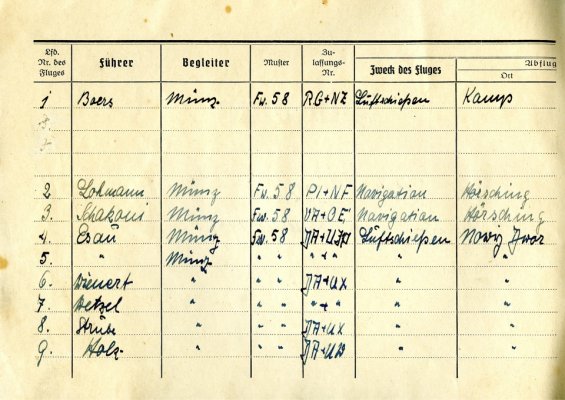 Lfd. Nr. des Fluges Führer Begleiter Muster Zu-lassungs-Nr. Zweck des Fluges Abflug Ort
1 Boers Münz Fw. 58 RG+NZ Luftschießen Kamp
2 Lohmann Münz Fw. 58 PI+NF Navigation Hörsching
3. Münz Fw. 58 VA+OE Navigation Hörsching
4. Esau Münz Fw. 58 Luftschießen Nowy Dwor
5. " Münz " " " + " " "
6. Wienert " " " DA+UX " "
7. Hetzel " " " " + " " "
8. Strübe " " " DA+UX " "
9. Holz " " " " "